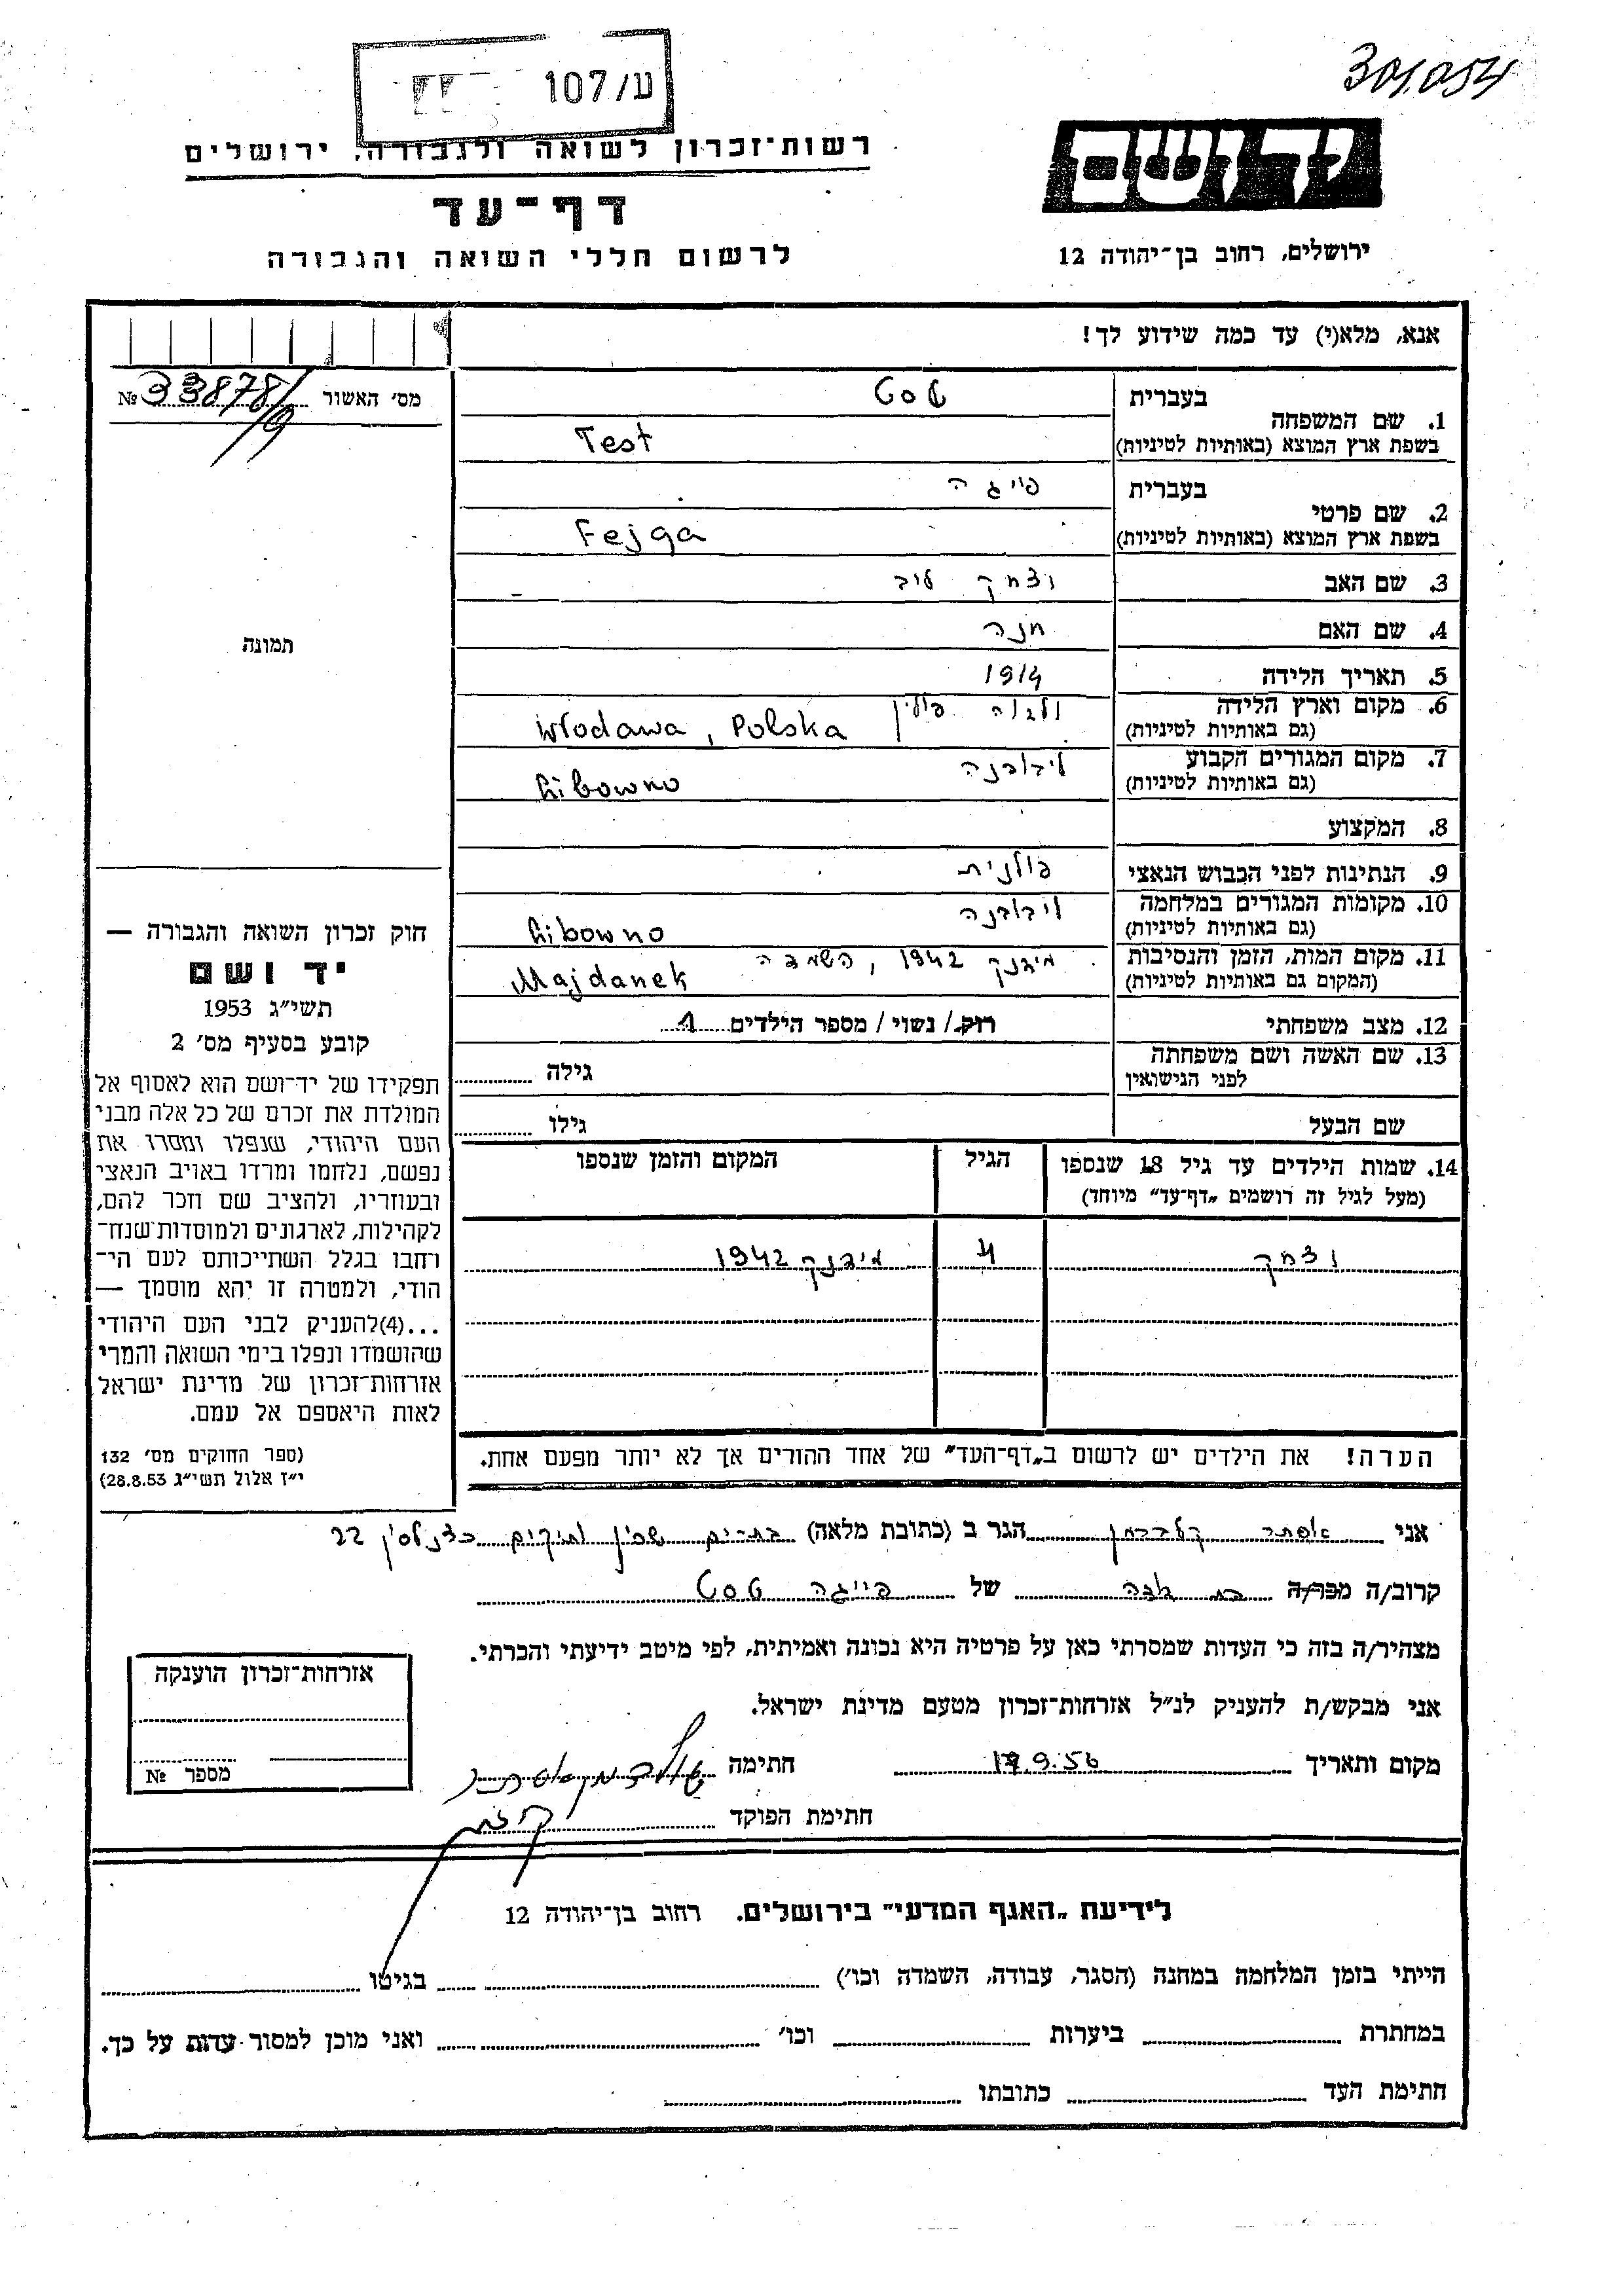 301.054
ע/107
יד ושם
רשות־זכרון לשואה ולגבורה, ירושלים
דף־עד
לרשום חללי השואה והגבורה
ירושלים, רחוב בן־יהודה 12
אנא, מלא(י) עד כמה שידוע לך!
מס׳ האשור № 33878/9
תמונה
1. שם המשפחה
בעברית טסט
בשפת ארץ המוצא (באותיות לטיניות) Test
2. שם פרטי
בעברית פייגה
בשפת ארץ המוצא (באותיות לטיניות) Fejga
3. שם האב יצחק ליב
4. שם האם חנה
5. תאריך הלידה 1914
6. מקום וארץ הלידה ולדוה פולין
(גם באותיות לטיניות) Włodawa, Polska
7. מקום המגורים הקבוע ליבובנה
(גם באותיות לטיניות) Libowno
8. המקצוע
9. הנתינות לפני הכבוש הנאצי פולנית
10. מקומות המגורים במלחמה ליבובנה
(גם באותיות לטיניות) Libowno
11. מקום המות, הזמן והנסיבות מידנק 1942, השמדה
(המקום גם באותיות לטיניות) Majdanek
12. מצב משפחתי רוק / נשוי / מספר הילדים 1
13. שם האשה ושם משפחתה
לפני הנישואין
גילה
שם הבעל גילו
14. שמות הילדים עד גיל 18 שנספו הגיל המקום והזמן שנספו
(מעל לגיל זה רושמים „דף־עד” מיוחד)
יצחק 4 מידנק 1942
הערה! את הילדים יש לרשום ב„דף־העד” של אחד ההורים אך לא יותר מפעם אחת.
חוק זכרון השואה והגבורה —
יד ושם
תשי״ג 1953
קובע בסעיף מס׳ 2
תפקידו של יד־ושם הוא לאסוף אל
המולדת את זכרם של כל אלה מבני
העם היהודי, שנפלו ומסרו את
נפשם, נלחמו ומרדו באויב הנאצי
ובעוזריו, ולהציב שם וזכר להם,
לקהילות, לארגונים ולמוסדות שנח־
רחבו בגלל השתייכותם לעם הי־
הודי, ולמטרה זו יהא מוסמך —
...(4) להעניק לבני העם היהודי
שהושמדו ונפלו בימי השואה והמרי
אזרחות־זכרון של מדינת ישראל
לאות היאספם אל עמם.
(ספר החוקים מס׳ 132
י״ז אלול תשי״ג 28.8.53)
אני אסתר הגר ב (כתובת מלאה) בת־ים שכון ותיקים 22
קרוב/ה מכר/ה בת דודה של פייגה טסט
מצהיר/ה בזה כי העדות שמסרתי כאן על פרטיה היא נכונה ואמיתית, לפי מיטב ידיעתי והכרתי.
אני מבקש/ת להעניק לנ״ל אזרחות־זכרון מטעם מדינת ישראל.
מקום ותאריך 17.9.56 חתימה
חתימת הפוקד
אזרחות־זכרון הוענקה
מספר №
לידיעת „האגף המדעי” בירושלים. רחוב בן־יהודה 12
הייתי בזמן המלחמה במחנה (הסגר, עבודה, השמדה וכו׳) בגיטו
במחתרת ביערות וכו׳ ואני מוכן למסור עדות על כך.
חתימת העד כתובתו